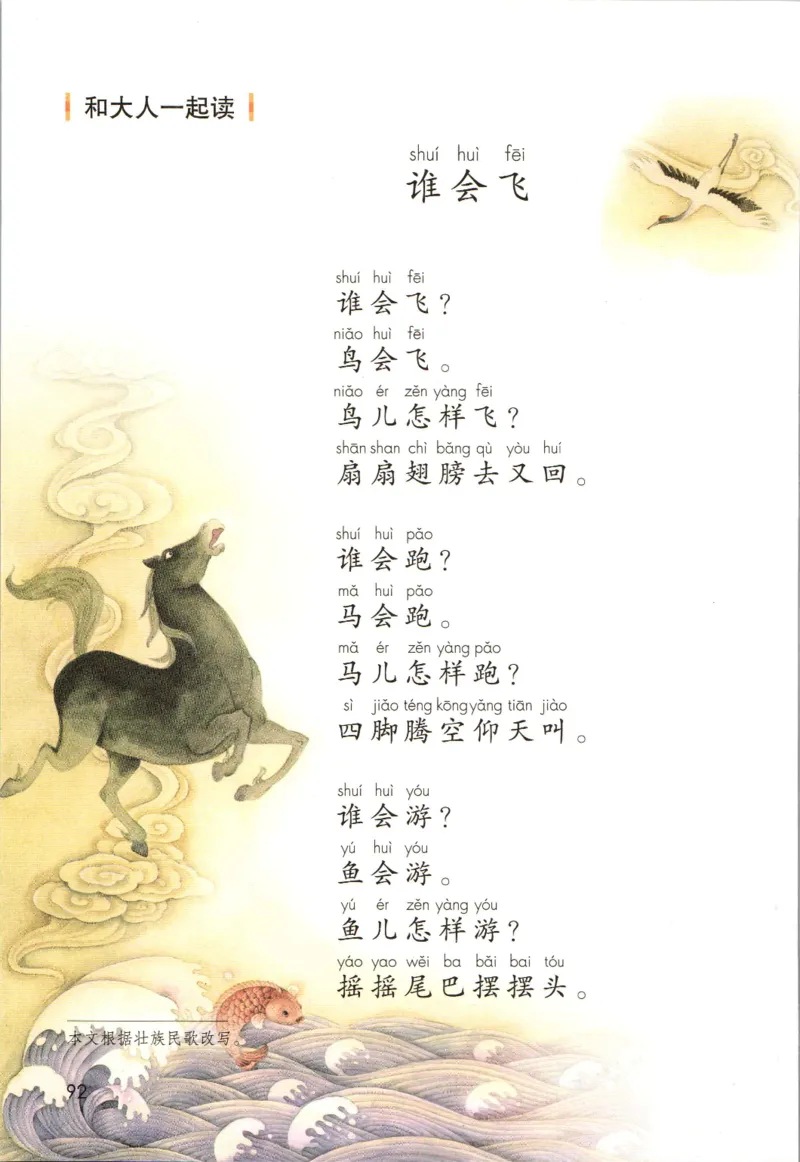 和大人一起读
shuí huì fēi
谁会飞
shuí huì fēi
谁会飞？
niǎo huì fēi
鸟会飞。
niǎo ér zěn yàng fēi
鸟儿怎样飞？
shān shan chì bǎng qù yòu huí
扇扇翅膀去又回。
shuí huì pǎo
谁会跑？
mǎ huì pǎo
马会跑。
mǎ ér zěn yàng pǎo
马儿怎样跑？
sì jiǎo téng kōng yǎng tiān jiào
四脚腾空仰天叫。
shuí huì yóu
谁会游？
yú huì yóu
鱼会游。
yú ér zěn yàng yóu
鱼儿怎样游？
yáo yao wěi ba bǎi bai tóu
摇摇尾巴摆摆头。
本文根据壮族民歌改写。
92